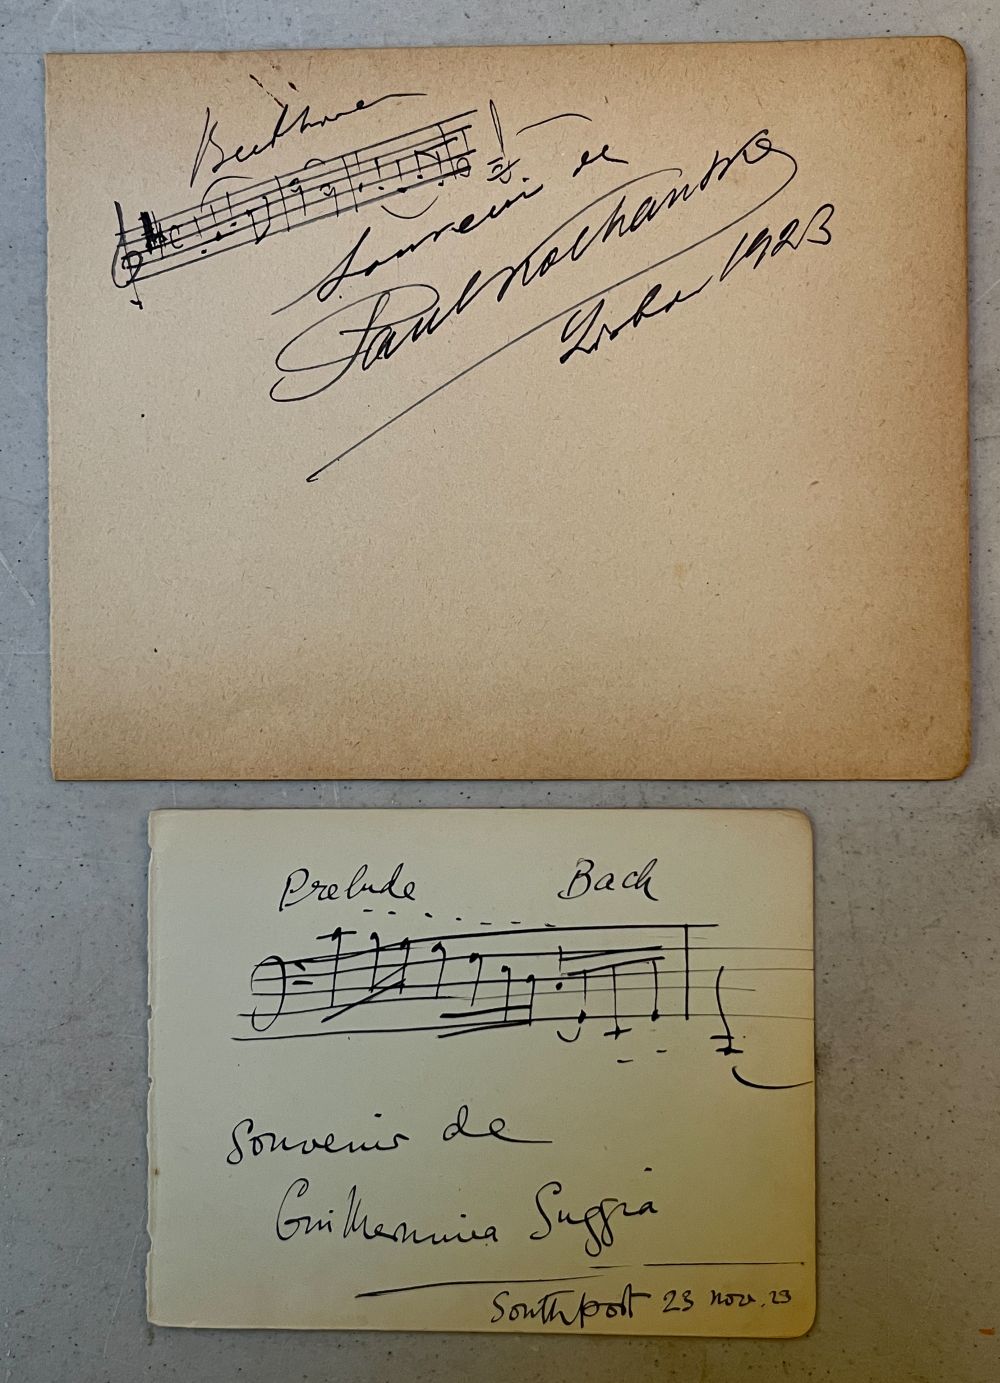 Beethoven
Souvenir de
Paul Kochanski
Lisboa 1923
Prelude Bach
Souvenir de
Guilhermina Suggia
Southport 23 nov. 23